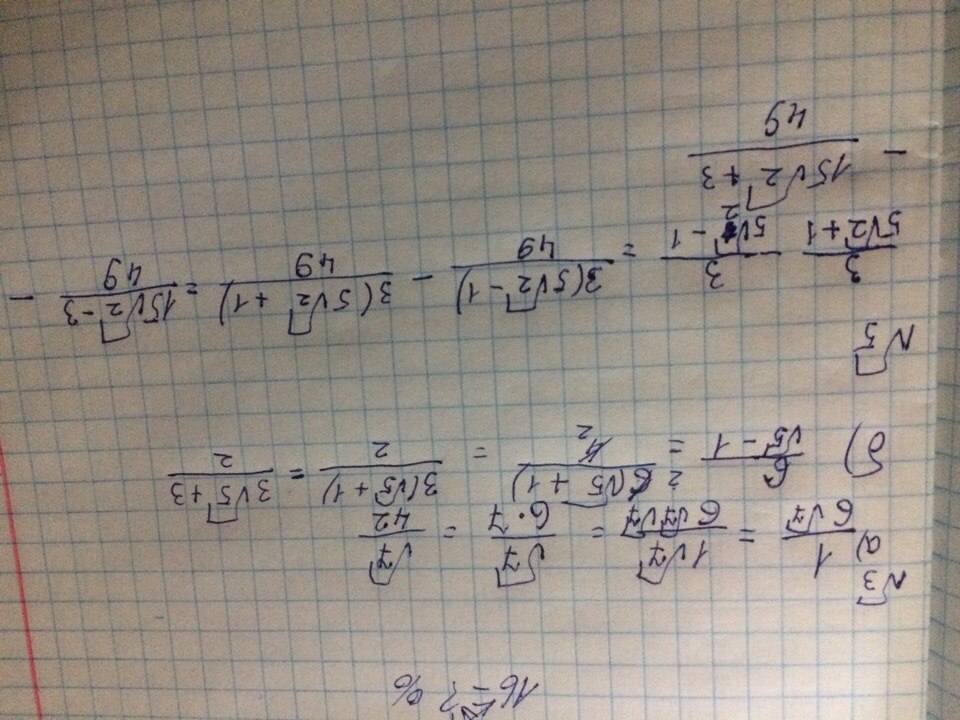 №3
а) 1/(6√7) = 1√7/(6√7√7) = √7/(6·7) = √7/42
б) 6/(√5 - 1) = 6(√5 + 1)/4 = 3(√5 + 1)/2 = (3√5 + 3)/2
№5
3/(5√2 + 1) - 3/(5√2 - 1) = 3(5√2 - 1)/49 - 3(5√2 + 1)/49 = (15√2 - 3)/49 -
- (15√2 + 3)/49